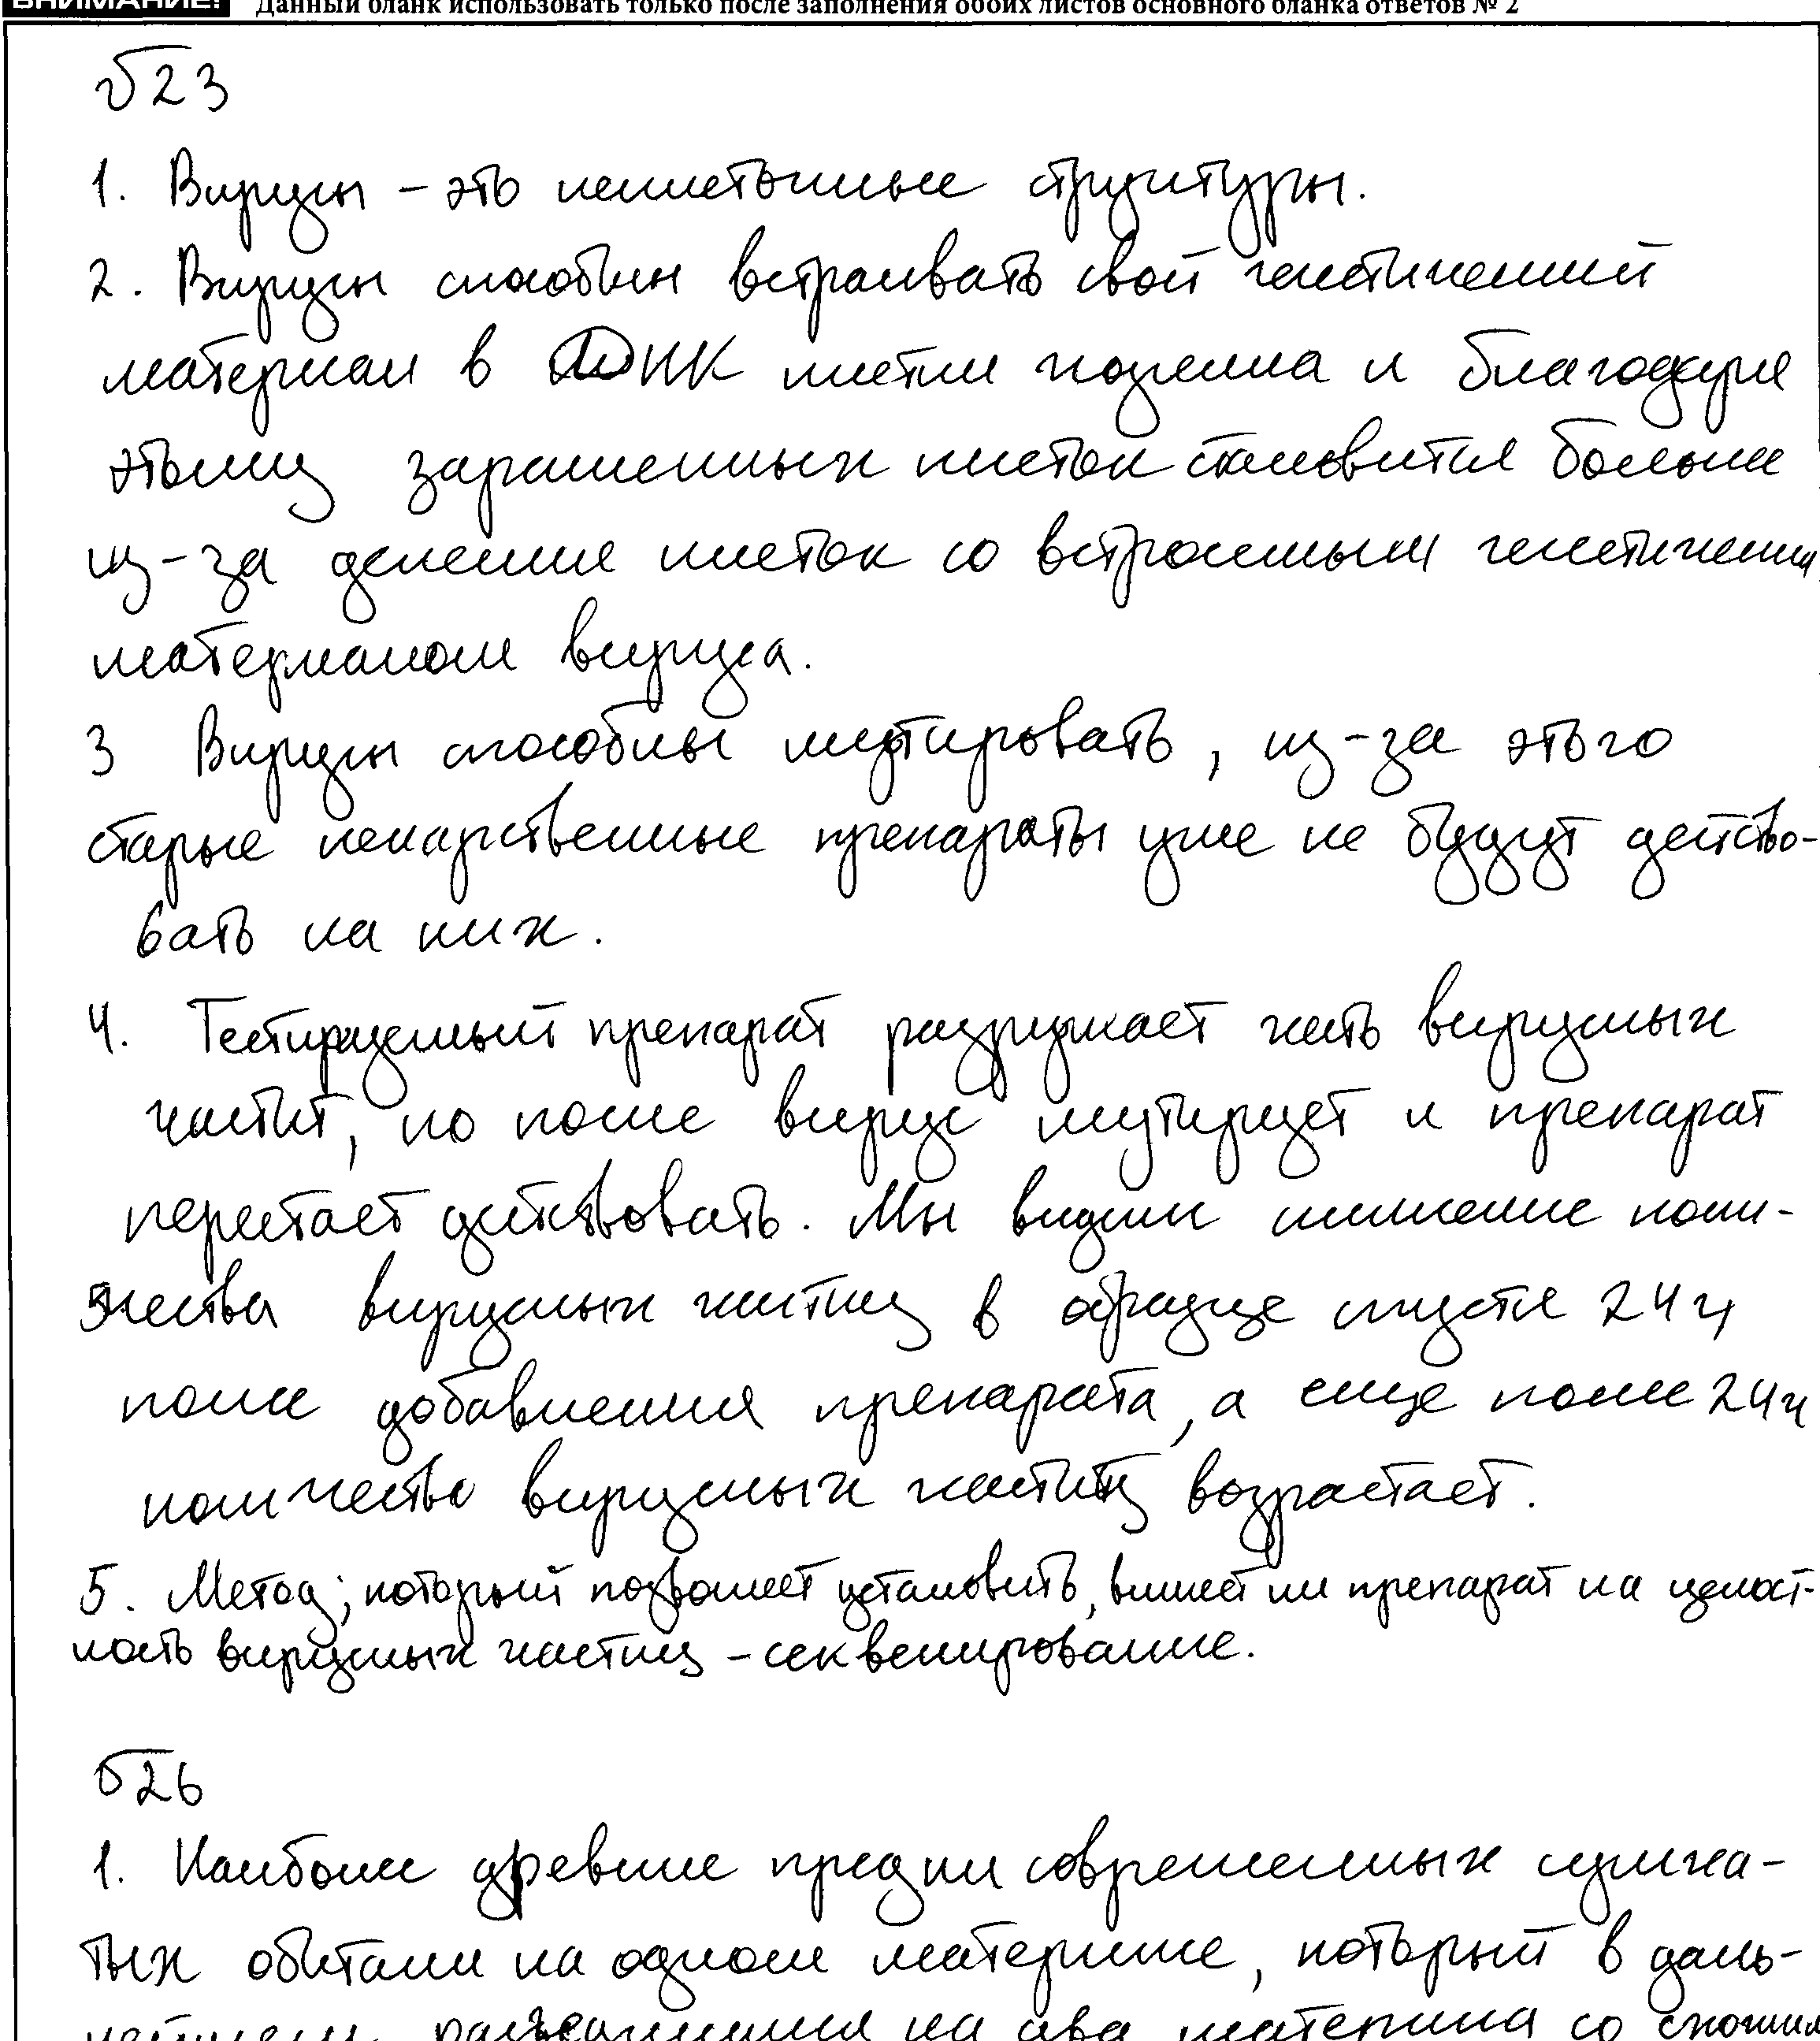 ВНИМАНИЕ! Данный бланк использовать только после заполнения обоих листов основного бланка ответов № 2
√23
1. Вирусы – это неклеточные структуры.
2. Вирусы способны встраивать свой генетический
материал в ДНК клетки хозяина и благодаря
этому зараженных клеток становится больше
из-за деления клеток со встроенным генетическим
материалом вируса.
3 Вирусы способны мутировать, из-за этого
старые лекарственные препараты уже не будут действо-
вать на них.
4. Тестируемый препарат разрушает часть вирусных
частит, но после вирус мутирует и препарат
перестает действовать. Мы видим снижение коли-
чества вирусных частиц в образце спустя 24 ч
после добавления препарата, а еще после 24 ч
количество вирусных частиц возрастает.
5. Метод, который позволяет установить, влияет ли препарат на целост-
ность вирусных частиц – секвенирование.
√26
1. Наиболее древние предки современных сумча-
тых обитали на одном материке, который в даль-
нейшем разъединился на два материка со